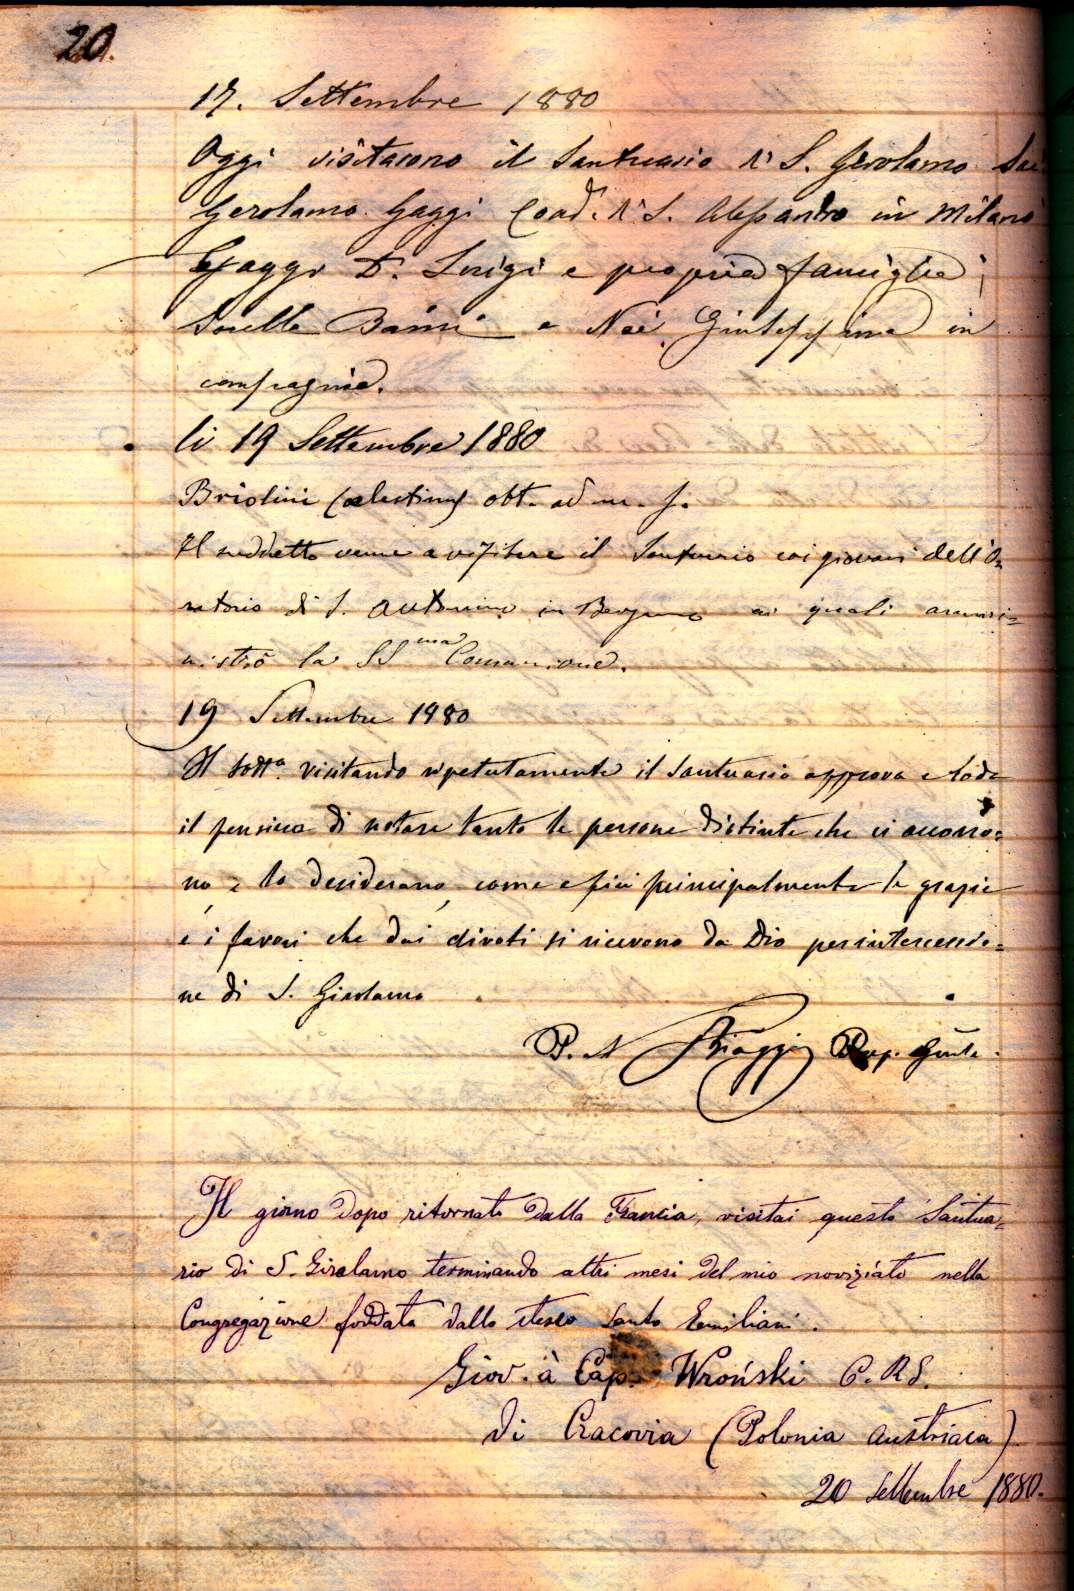 20.
17. Settembre 1880
Oggi visitarono il Santuario di S. Gerolamo Sac.
Gerolamo Gaggi Coad. di S. Alessandro in Milano
Gaggi D. Luigi e propria famiglia;
Sorelle e Noè Giuseppina in
compagnia.
li 19 Settembre 1880
Briolini Celestino obt. ad m. f.
Il suddetto venne a visitare il Santuario coi giovani dell'O-
ratorio di S. Antonino in Bergamo ai quali ammi=
nistrò la SS.ma Comunione.
19 Settembre 1880
Il sotto. visitando ripetutamente il Santuario approva e loda
il pensiero di notare tanto le persone distinte che vi accorro=
no e lo desiderano, come e più principalmente le grazie
e i favori che dai divoti si ricevono da Dio per intercessio=
ne di S. Girolamo
P. N Biaggi Prep. Gnle.
Il giorno dopo ritornato dalla Francia, visitai questo Santua=
rio di S. Girolamo terminando altri mesi del mio noviziato nella
Congregazione fondata dallo stesso Santo Emiliani.
Giov. à Cap. Wroński C. R. S.
di Cracovia (Polonia Austriaca)
20 Settembre 1880.